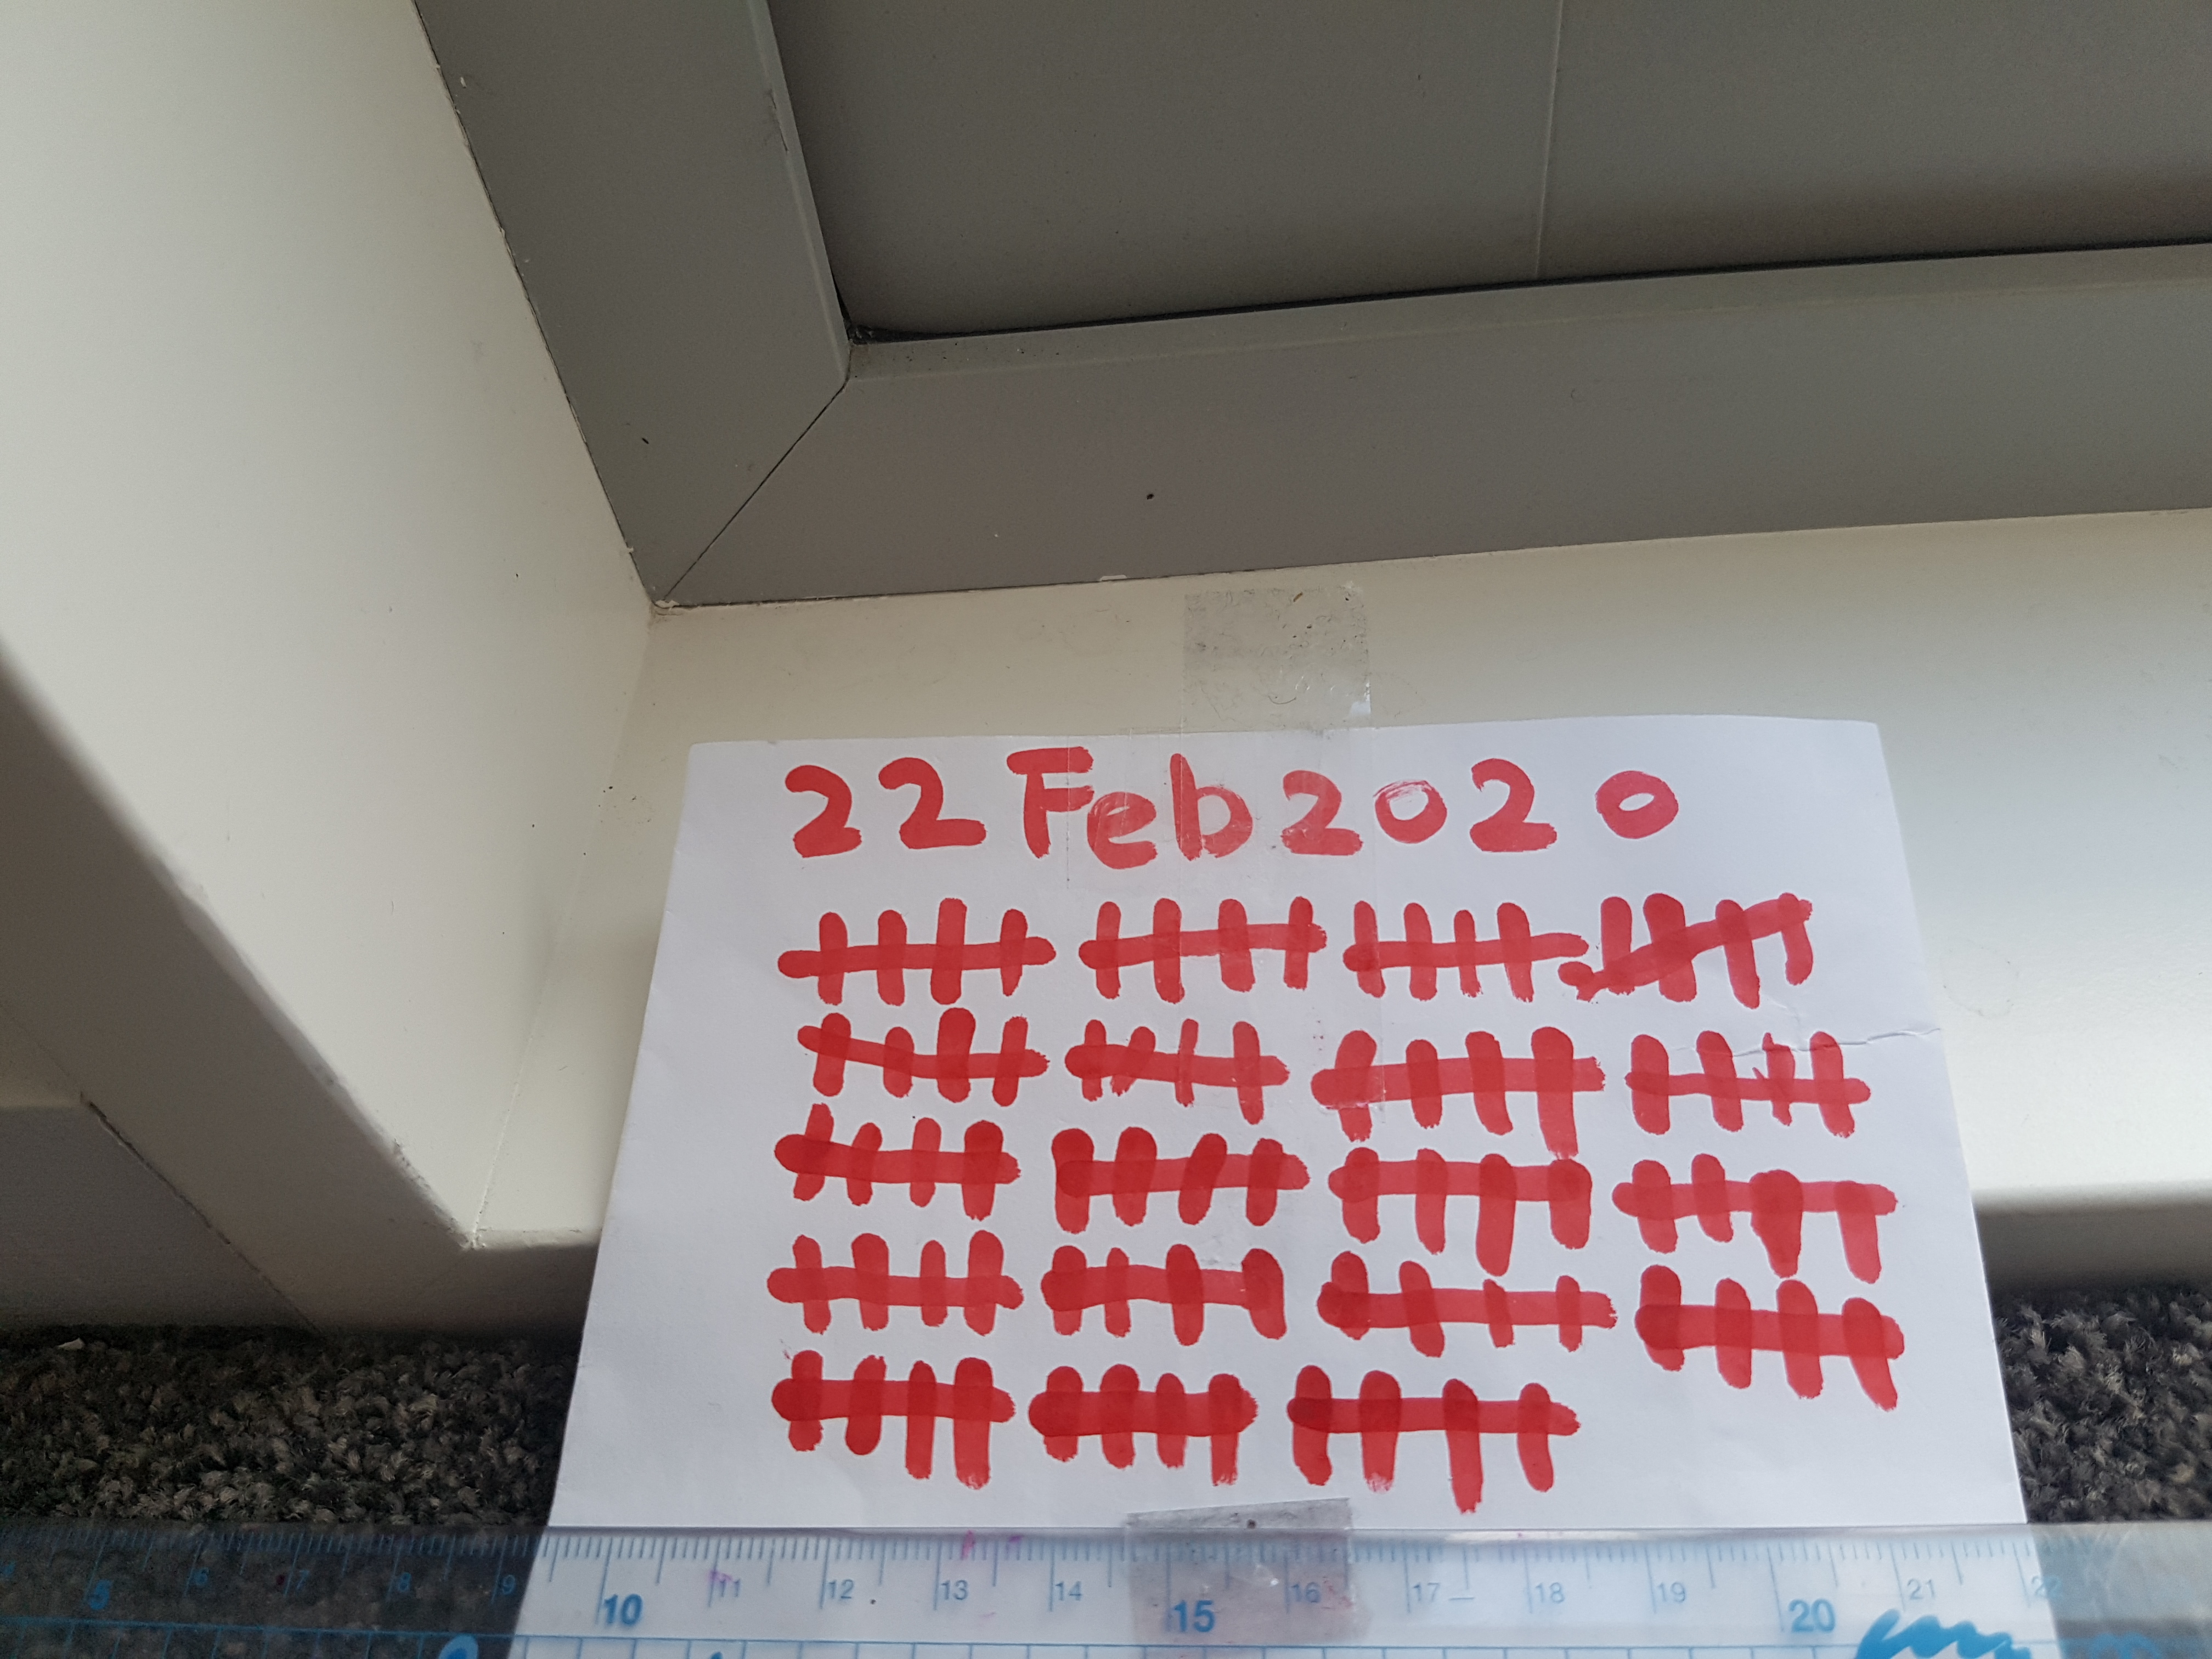 22 Feb 2020
5 6 7 8 9 10 11 12 13 14 15 16 17 18 19 20 21 22